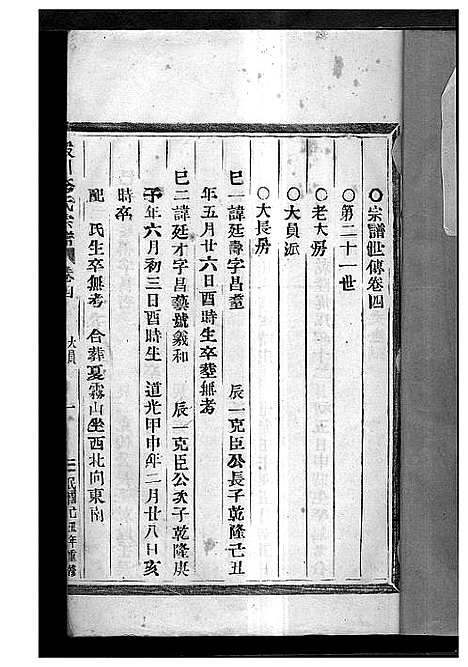 ○宗譜世傳卷四
○第二十一世
○老大房
○大員派
○大長房
巳一諱廷壽字昌耋 辰一克臣公長子乾隆己丑
年五月廿六日酉時生卒塟無考
巳二諱廷才字昌藝號義和 辰一克臣公次子乾隆庚
子年六月初三日酉時生 道光甲申年二月廿八日亥
時卒
配 氏生卒無考 合葬夏霧山坐西北向東南
川 氏宗譜 卷四 大員 一 民國 丑年重修